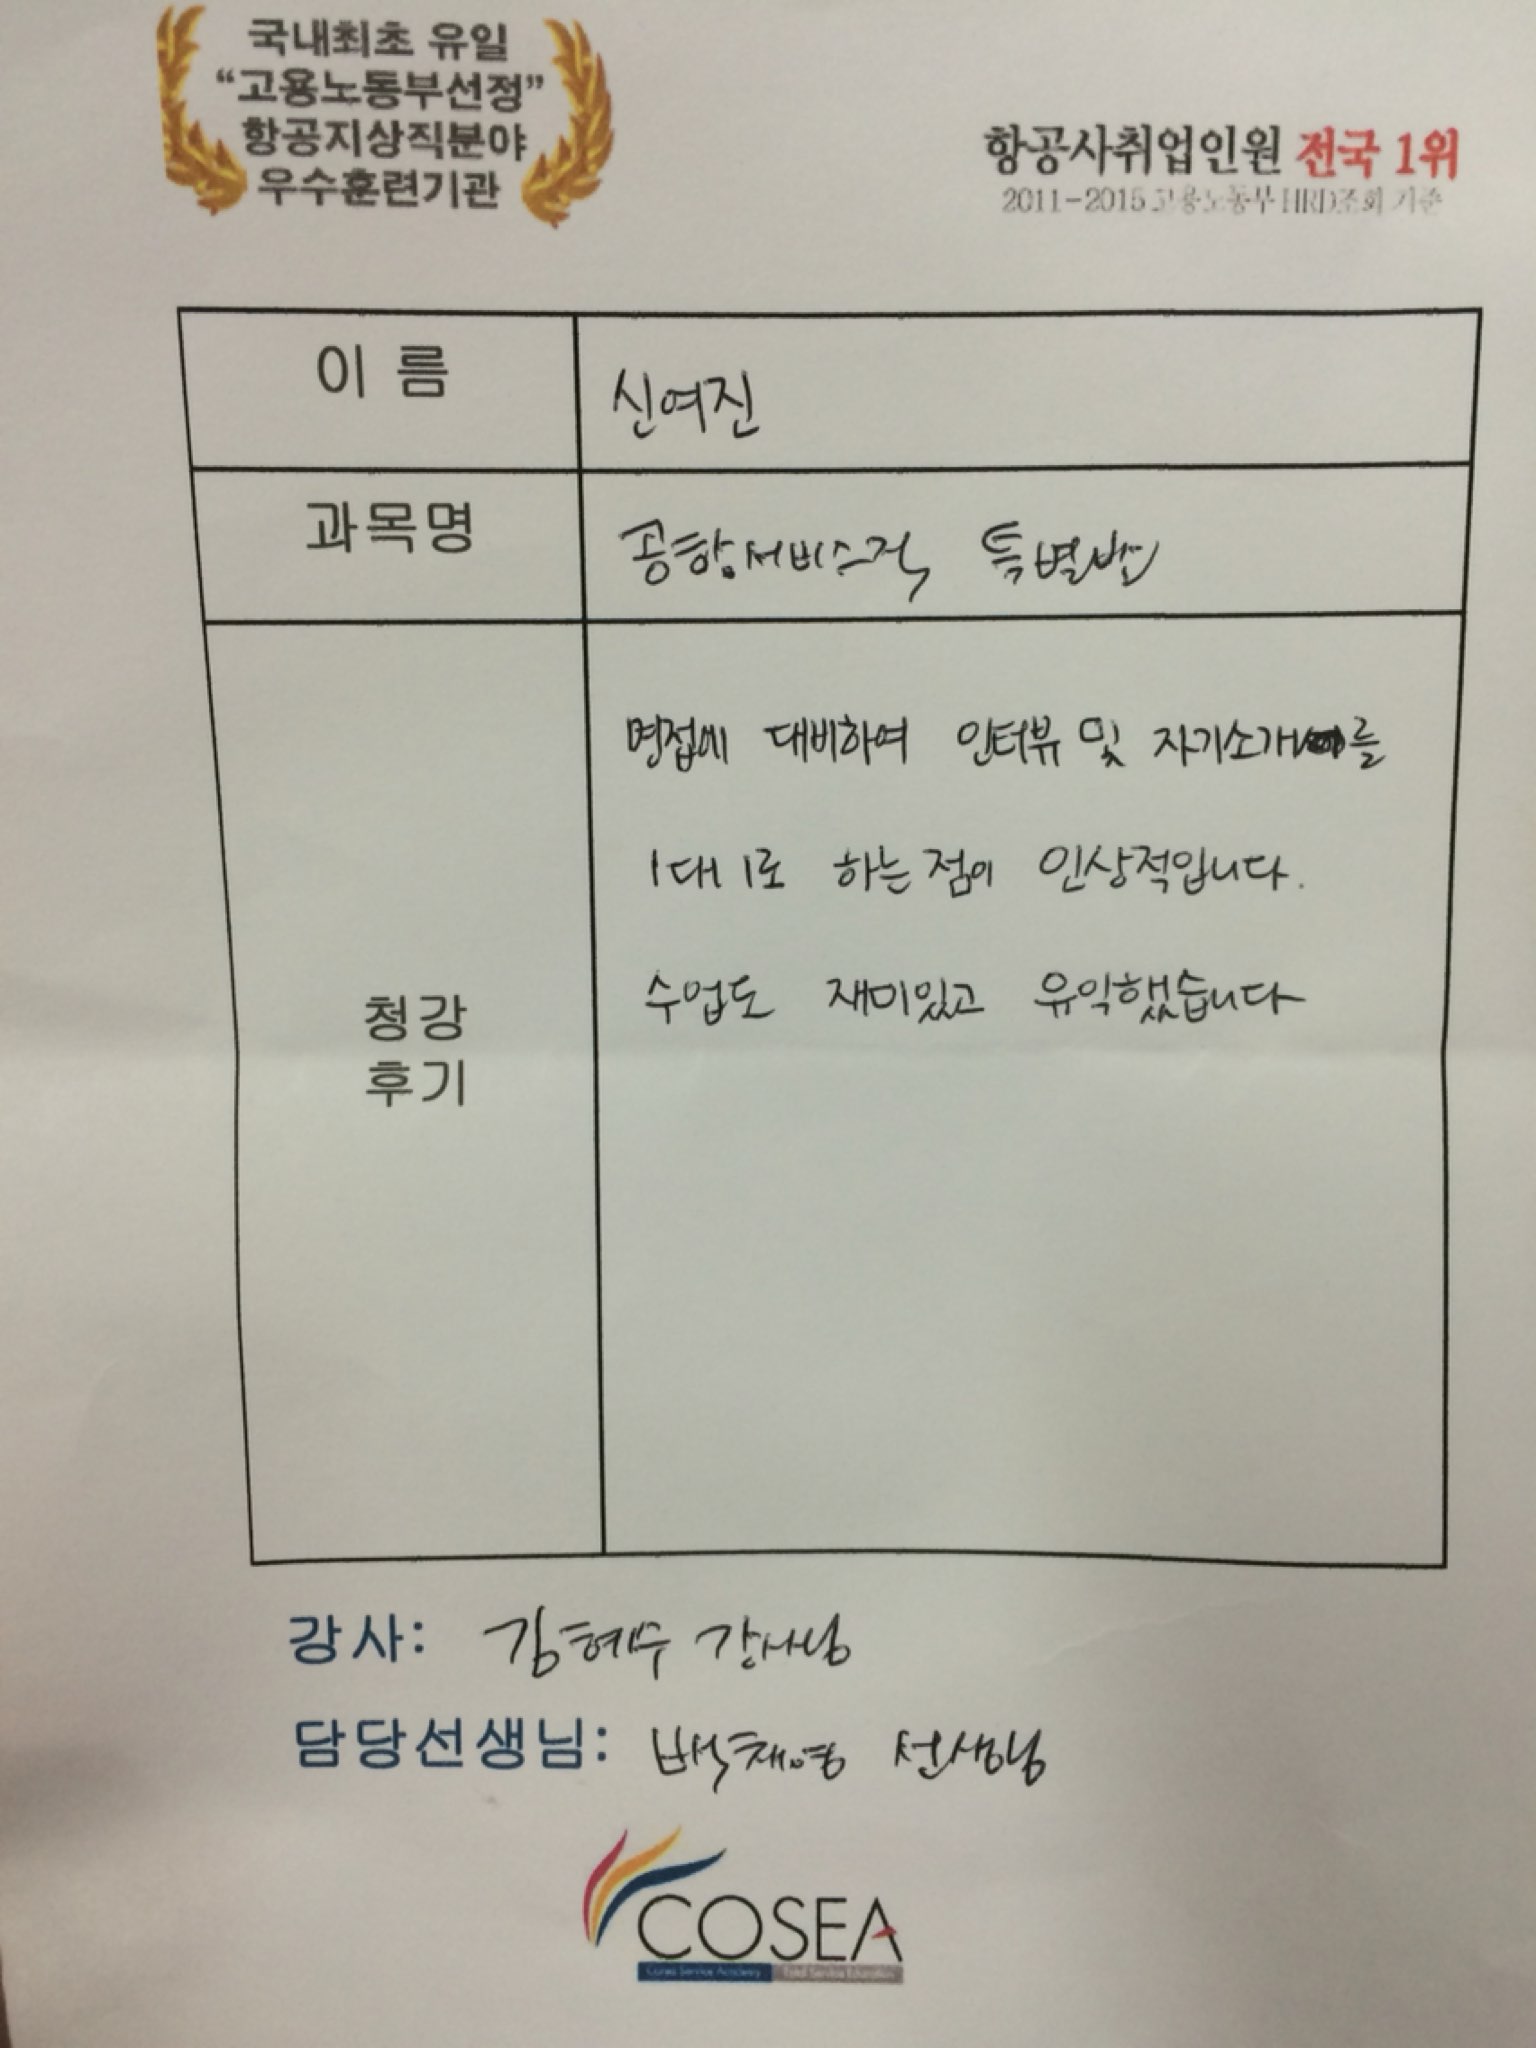 국내최초 유일
“고용노동부선정”
항공지상직분야
우수훈련기관
항공사취업인원 전국 1위
2011-2015 고용노동부 HRD조회 기준
이 름
신여진
과목명
공항서비스직 특별반
면접에 대비하여 인터뷰 및 자기소개를
1대1로 하는점이 인상적입니다.
수업도 재미있고 유익했습니다
청강
후기
강사: 김혜수 강사님
담당선생님: 백채영 선생님
COSEA
Cosea Service Academy Total Service Education